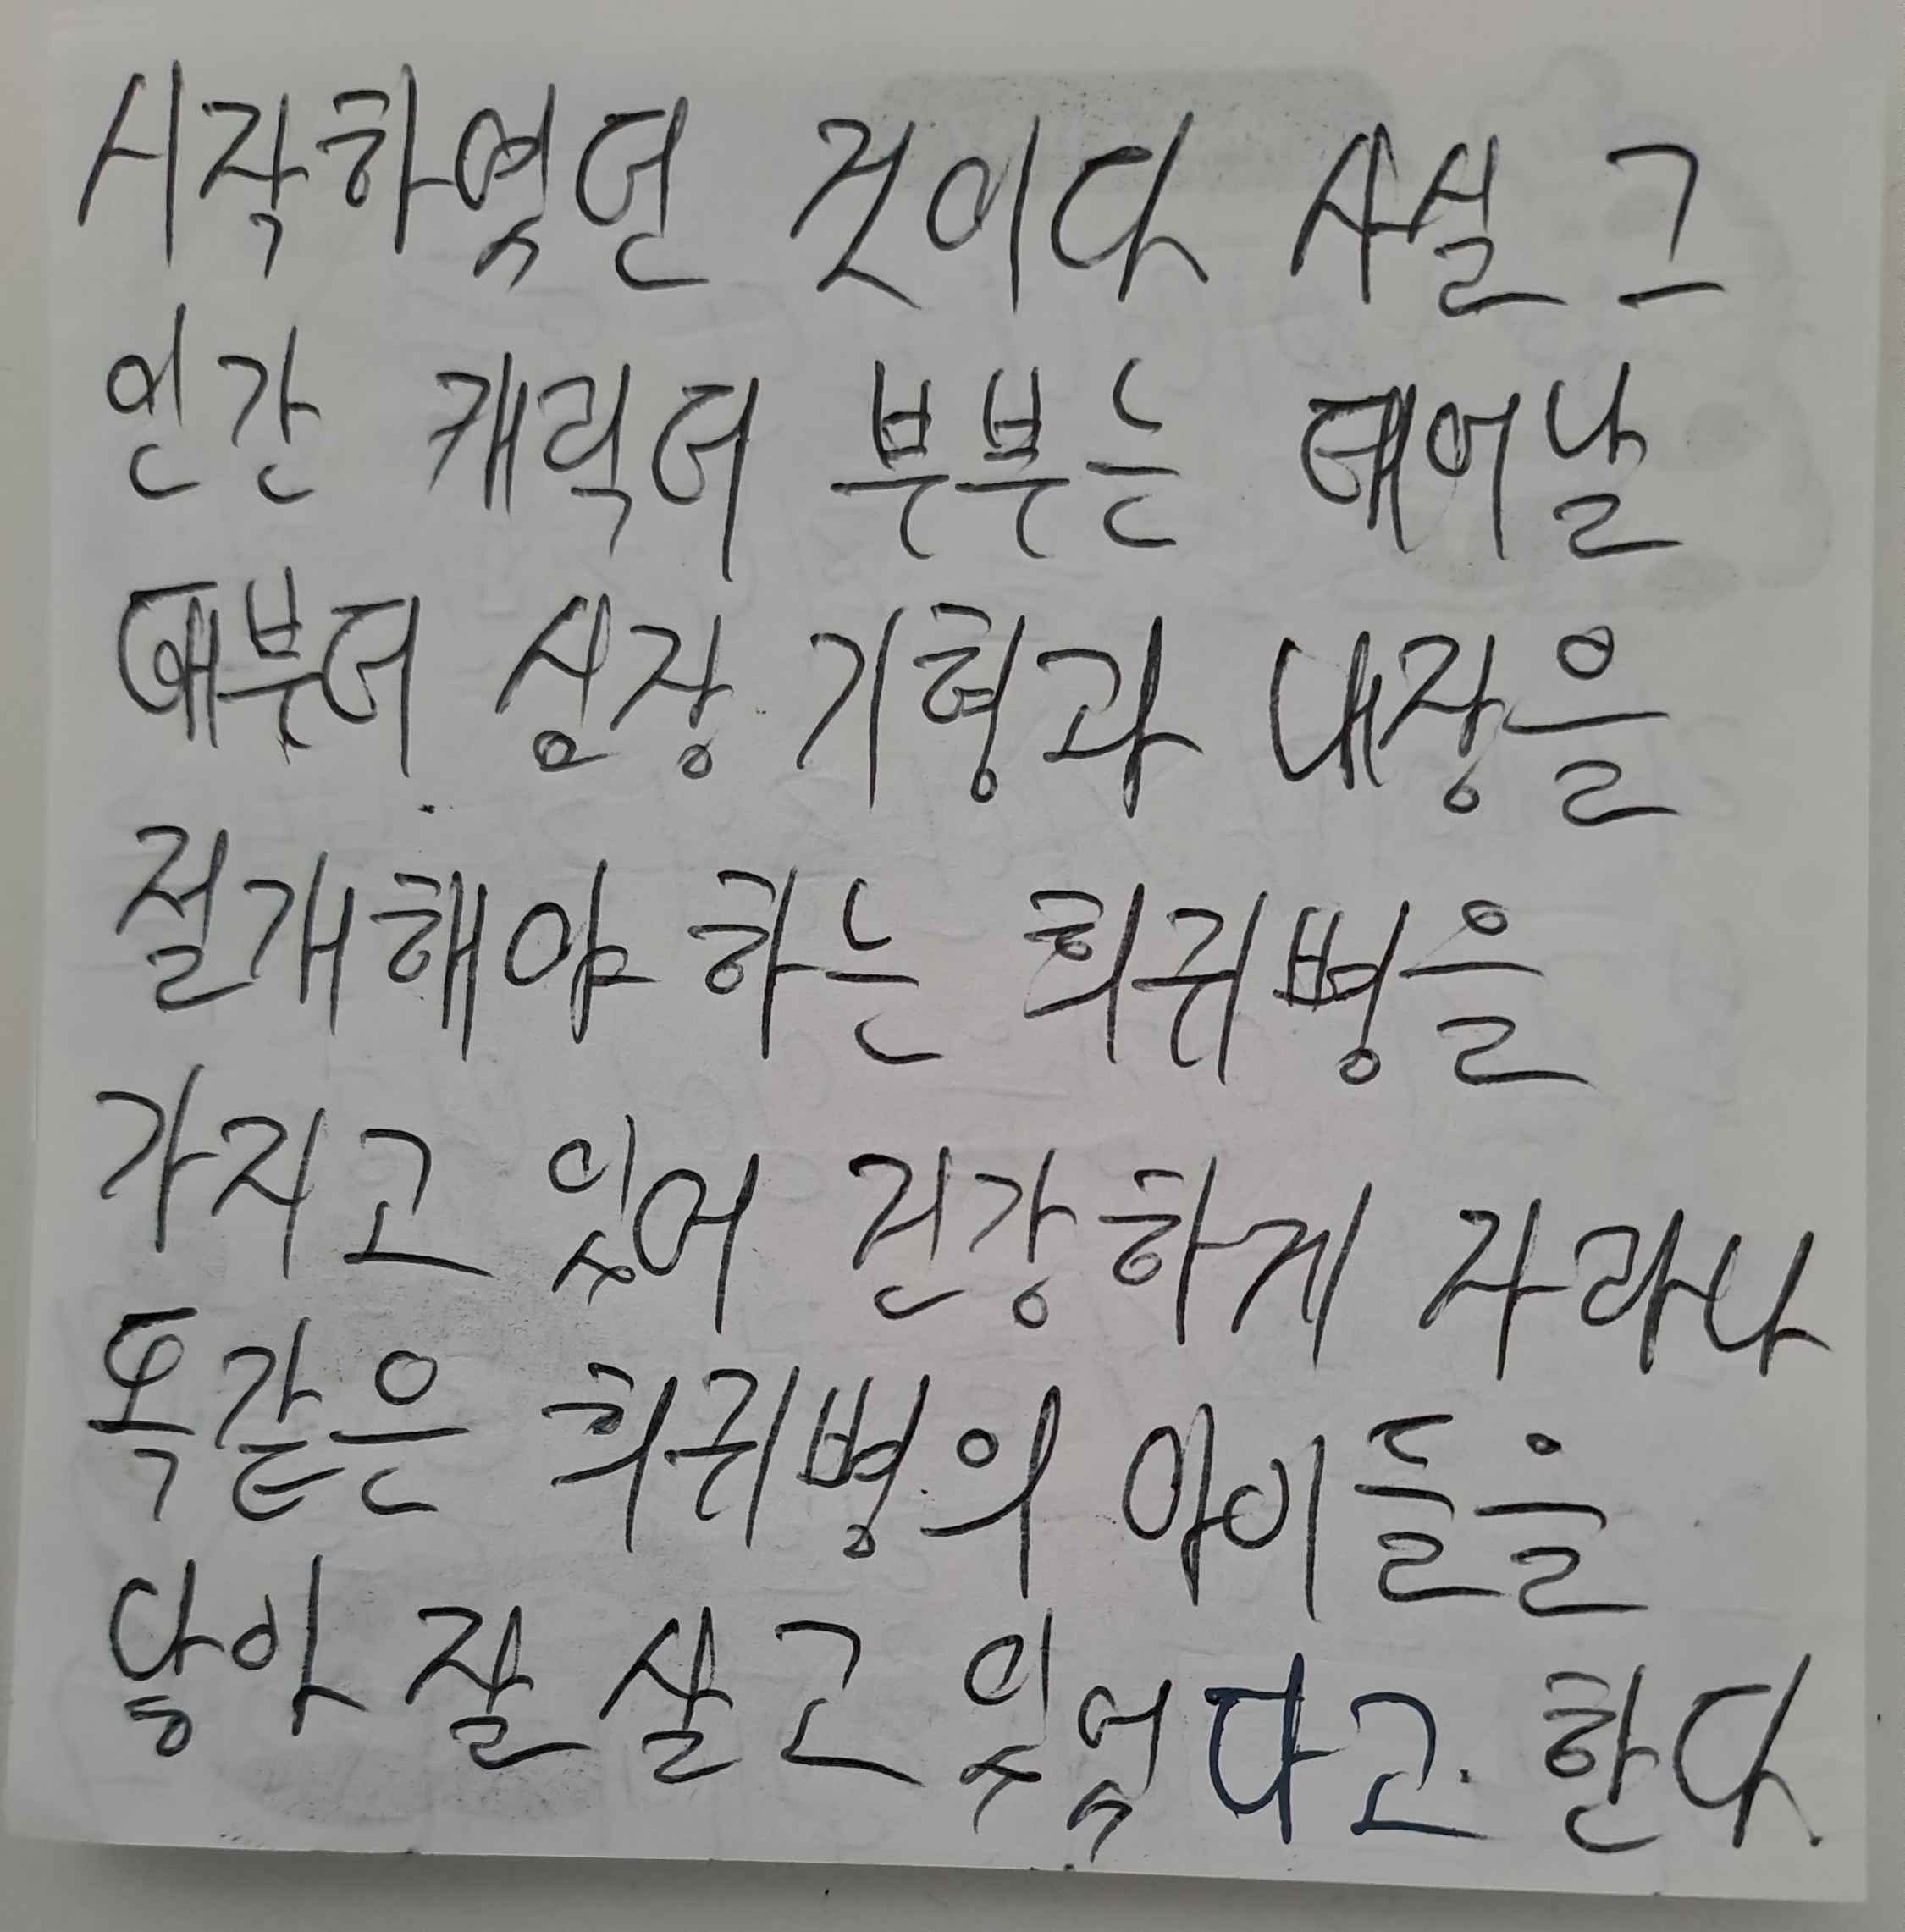 시작하였던 것이다 사실 그
인간 캐릭터 부부는 태어날
때부터 심장 기형과 내장을
절개해야 하는 희귀병을
가지고 있어 건강하게 자라나
똑같은 희귀병의 아이들을
낳아 잘 살고 있었다고 한다